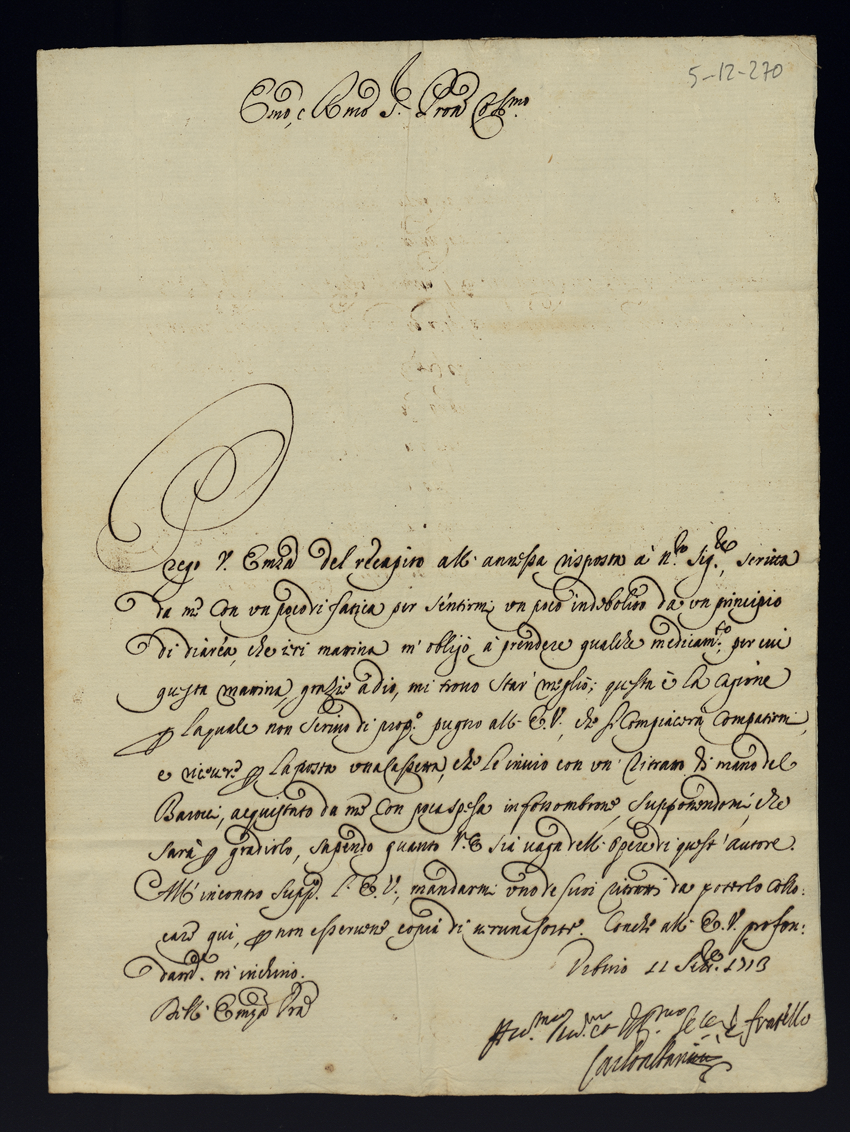 5-12-270
Emo, e Rmo S.r Pron Col.mo
Prego V. Emza del recapito all'annessa risposta à N.ro Sig.re, scritta
da me con un poco di fatica per sentirmi un poco indebolito da un principio
di diaréa, che ieri matina m'obligò à prendere qualche medicam.to, per cui
questa matina, grazie à dio, mi trovo star meglio; questa è la cagione
p laquale non scrivo di prop.o pugno all'E.V., che si compiacerà compatirmi,
e ricever p la posta una cassetta, che le invio con un Ritratto di mano del
Barocci, acquistato da me con poca spesa in fossombrone, supponendomi, che
sarà p gradirlo, sapendo quanto V.E. sia vaga dell'opere di quest'autore.
All'incontro supp.o l'E.V., mandarmi uno de suoi ritratti da poterlo collo:
care qui, p non esservene copia di veruna sorte. Conche all'E.V. profon:
dam.e m'inchino.
Urbino 11 Sbre. 1713
Dell'Emza Vra
fratello